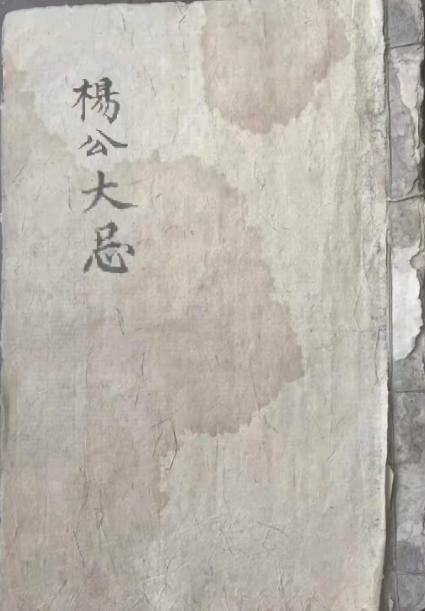 楊公大忌